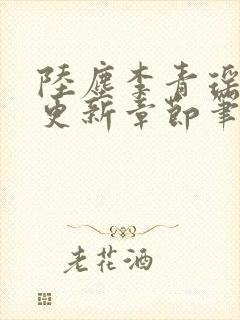 陸塵李青瑶
更新章節筆
老花酒